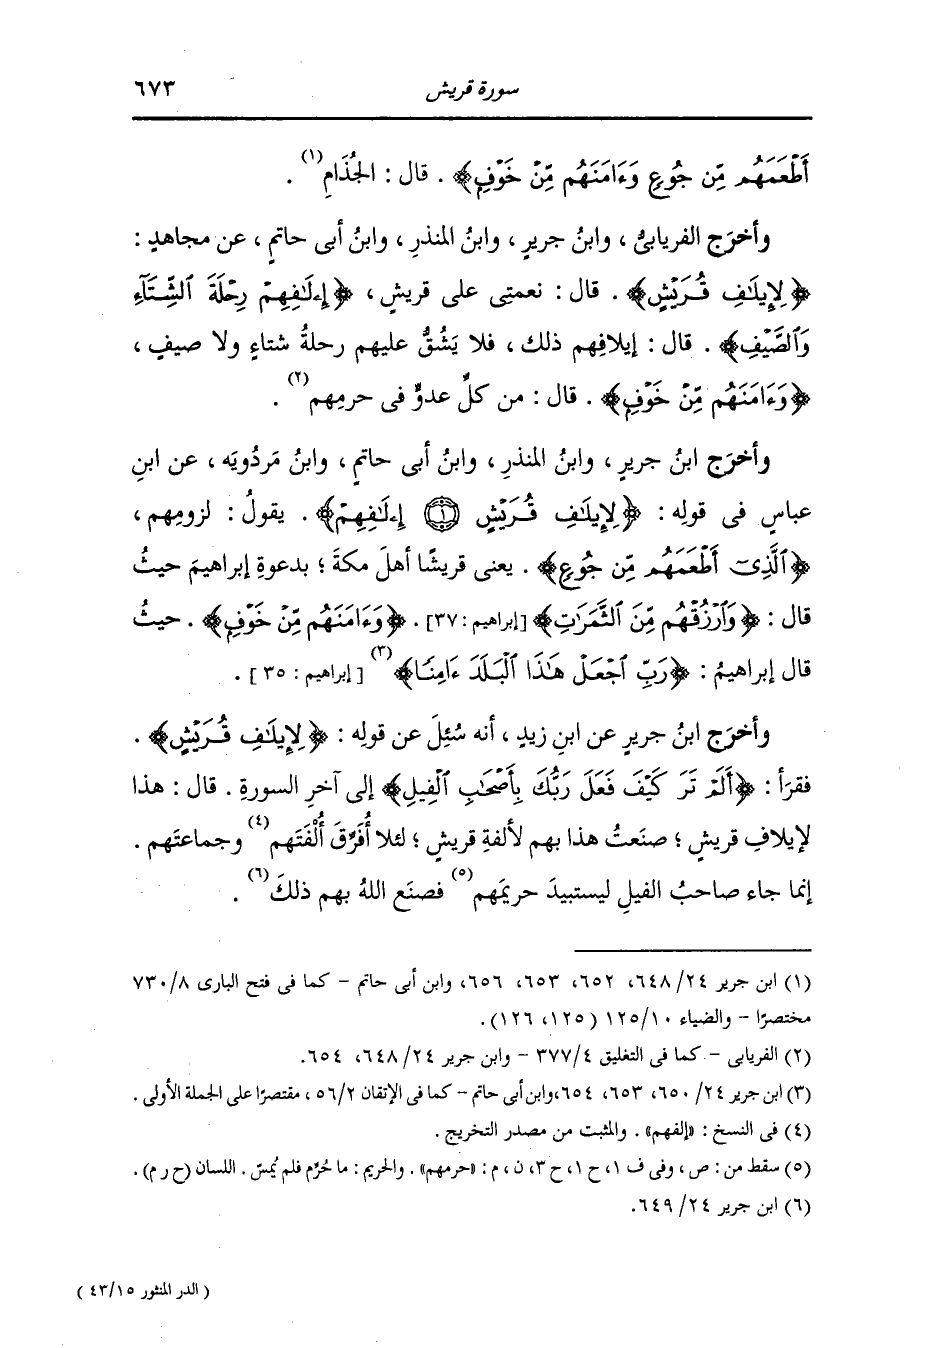 سورة قريش ٦٧٣
أَطْعَمَهُم مِّن جُوعٍ وَءَامَنَهُم مِّنْ خَوْفٍ﴾ . قال : الجُذَامِ(١) .
وأخرَج الفريابىُّ ، وابنُ جريرٍ ، وابنُ المنذرِ ، وابنُ أبى حاتمٍ ، عن مجاهدٍ :
﴿لِإِيلَٰفِ قُرَيْشٍ﴾ . قال : نعمتى على قريشٍ ، ﴿إِۦلَٰفِهِمْ رِحْلَةَ ٱلشِّتَآءِ
وَٱلصَّيْفِ﴾ . قال : إيلافِهم ذلك ، فلا يَشُقُّ عليهم رحلةُ شتاءٍ ولا صيفٍ ،
﴿وَءَامَنَهُم مِّنْ خَوْفٍ﴾ . قال : من كلِّ عدوٍّ فى حرمِهم(٢) .
وأخرَج ابنُ جريرٍ ، وابنُ المنذرِ ، وابنُ أبى حاتمٍ ، وابنُ مَردُويَه ، عن ابنِ
عباسٍ فى قولِه : ﴿لِإِيلَٰفِ قُرَيْشٍ ۝١ إِۦلَٰفِهِمْ﴾ . يقولُ : لزومِهم ،
﴿ٱلَّذِىٓ أَطْعَمَهُم مِّن جُوعٍ﴾ . يعنى قريشًا أهلَ مكةَ ؛ بدعوةِ إبراهيمَ حيثُ
قال : ﴿وَٱرْزُقْهُم مِّنَ ٱلثَّمَرَٰتِ﴾ [إبراهيم : ٣٧] . ﴿وَءَامَنَهُم مِّنْ خَوْفٍ﴾ . حيثُ
قال إبراهيمُ : ﴿رَبِّ ٱجْعَلْ هَٰذَا ٱلْبَلَدَ ءَامِنًا﴾(٣) [ إبراهيم : ٣٥ ] .
وأخرَج ابنُ جريرٍ عن ابنِ زيدٍ ، أنه سُئِلَ عن قولِه : ﴿لِإِيلَٰفِ قُرَيْشٍ﴾ .
فقرَأ : ﴿أَلَمْ تَرَ كَيْفَ فَعَلَ رَبُّكَ بِأَصْحَٰبِ ٱلْفِيلِ﴾ إلى آخرِ السورةِ . قال : هذا
لإيلافِ قريشٍ ؛ صنَعتُ هذا بهم لألفةِ قريشٍ ؛ لئلا أُفَرِّقَ أُلْفَتَهم(٤) وجماعتَهم .
إنما جاء صاحبُ الفيلِ ليستبيدَ حريمَهم(٥) فصنَع اللهُ بهم ذلكَ(٦) .
(١) ابن جرير ٢٤/ ٦٤٨، ٦٥٢، ٦٥٣، ٦٥٦، وابن أبى حاتم - كما فى فتح البارى ٧٣٠/٨
مختصرًا - والضياء ١٢٥/١٠ ( ١٢٥، ١٢٦).
(٢) الفريابى - كما فى التغليق ٣٧٧/٤ - وابن جرير ٢٤/ ٦٤٨، ٦٥٤.
(٣) ابن جرير ٢٤/ ٦٥٠، ٦٥٣، ٦٥٤،وابن أبى حاتم - كما فى الإتقان ٥٦/٢ ، مقتصرًا على الجملة الأولى .
(٤) فى النسخ : «إلفهم» . والمثبت من مصدر التخريج .
(٥) سقط من : ص ، وفى ف ١، ح ١، ح ٣، ن ، م : «حرمهم» . والحريم : ما حُرِّم فلم يُمسّ . اللسان (ح ر م) .
(٦) ابن جرير ٢٤/ ٦٤٩.
( الدر المنثور ٤٣/١٥ )